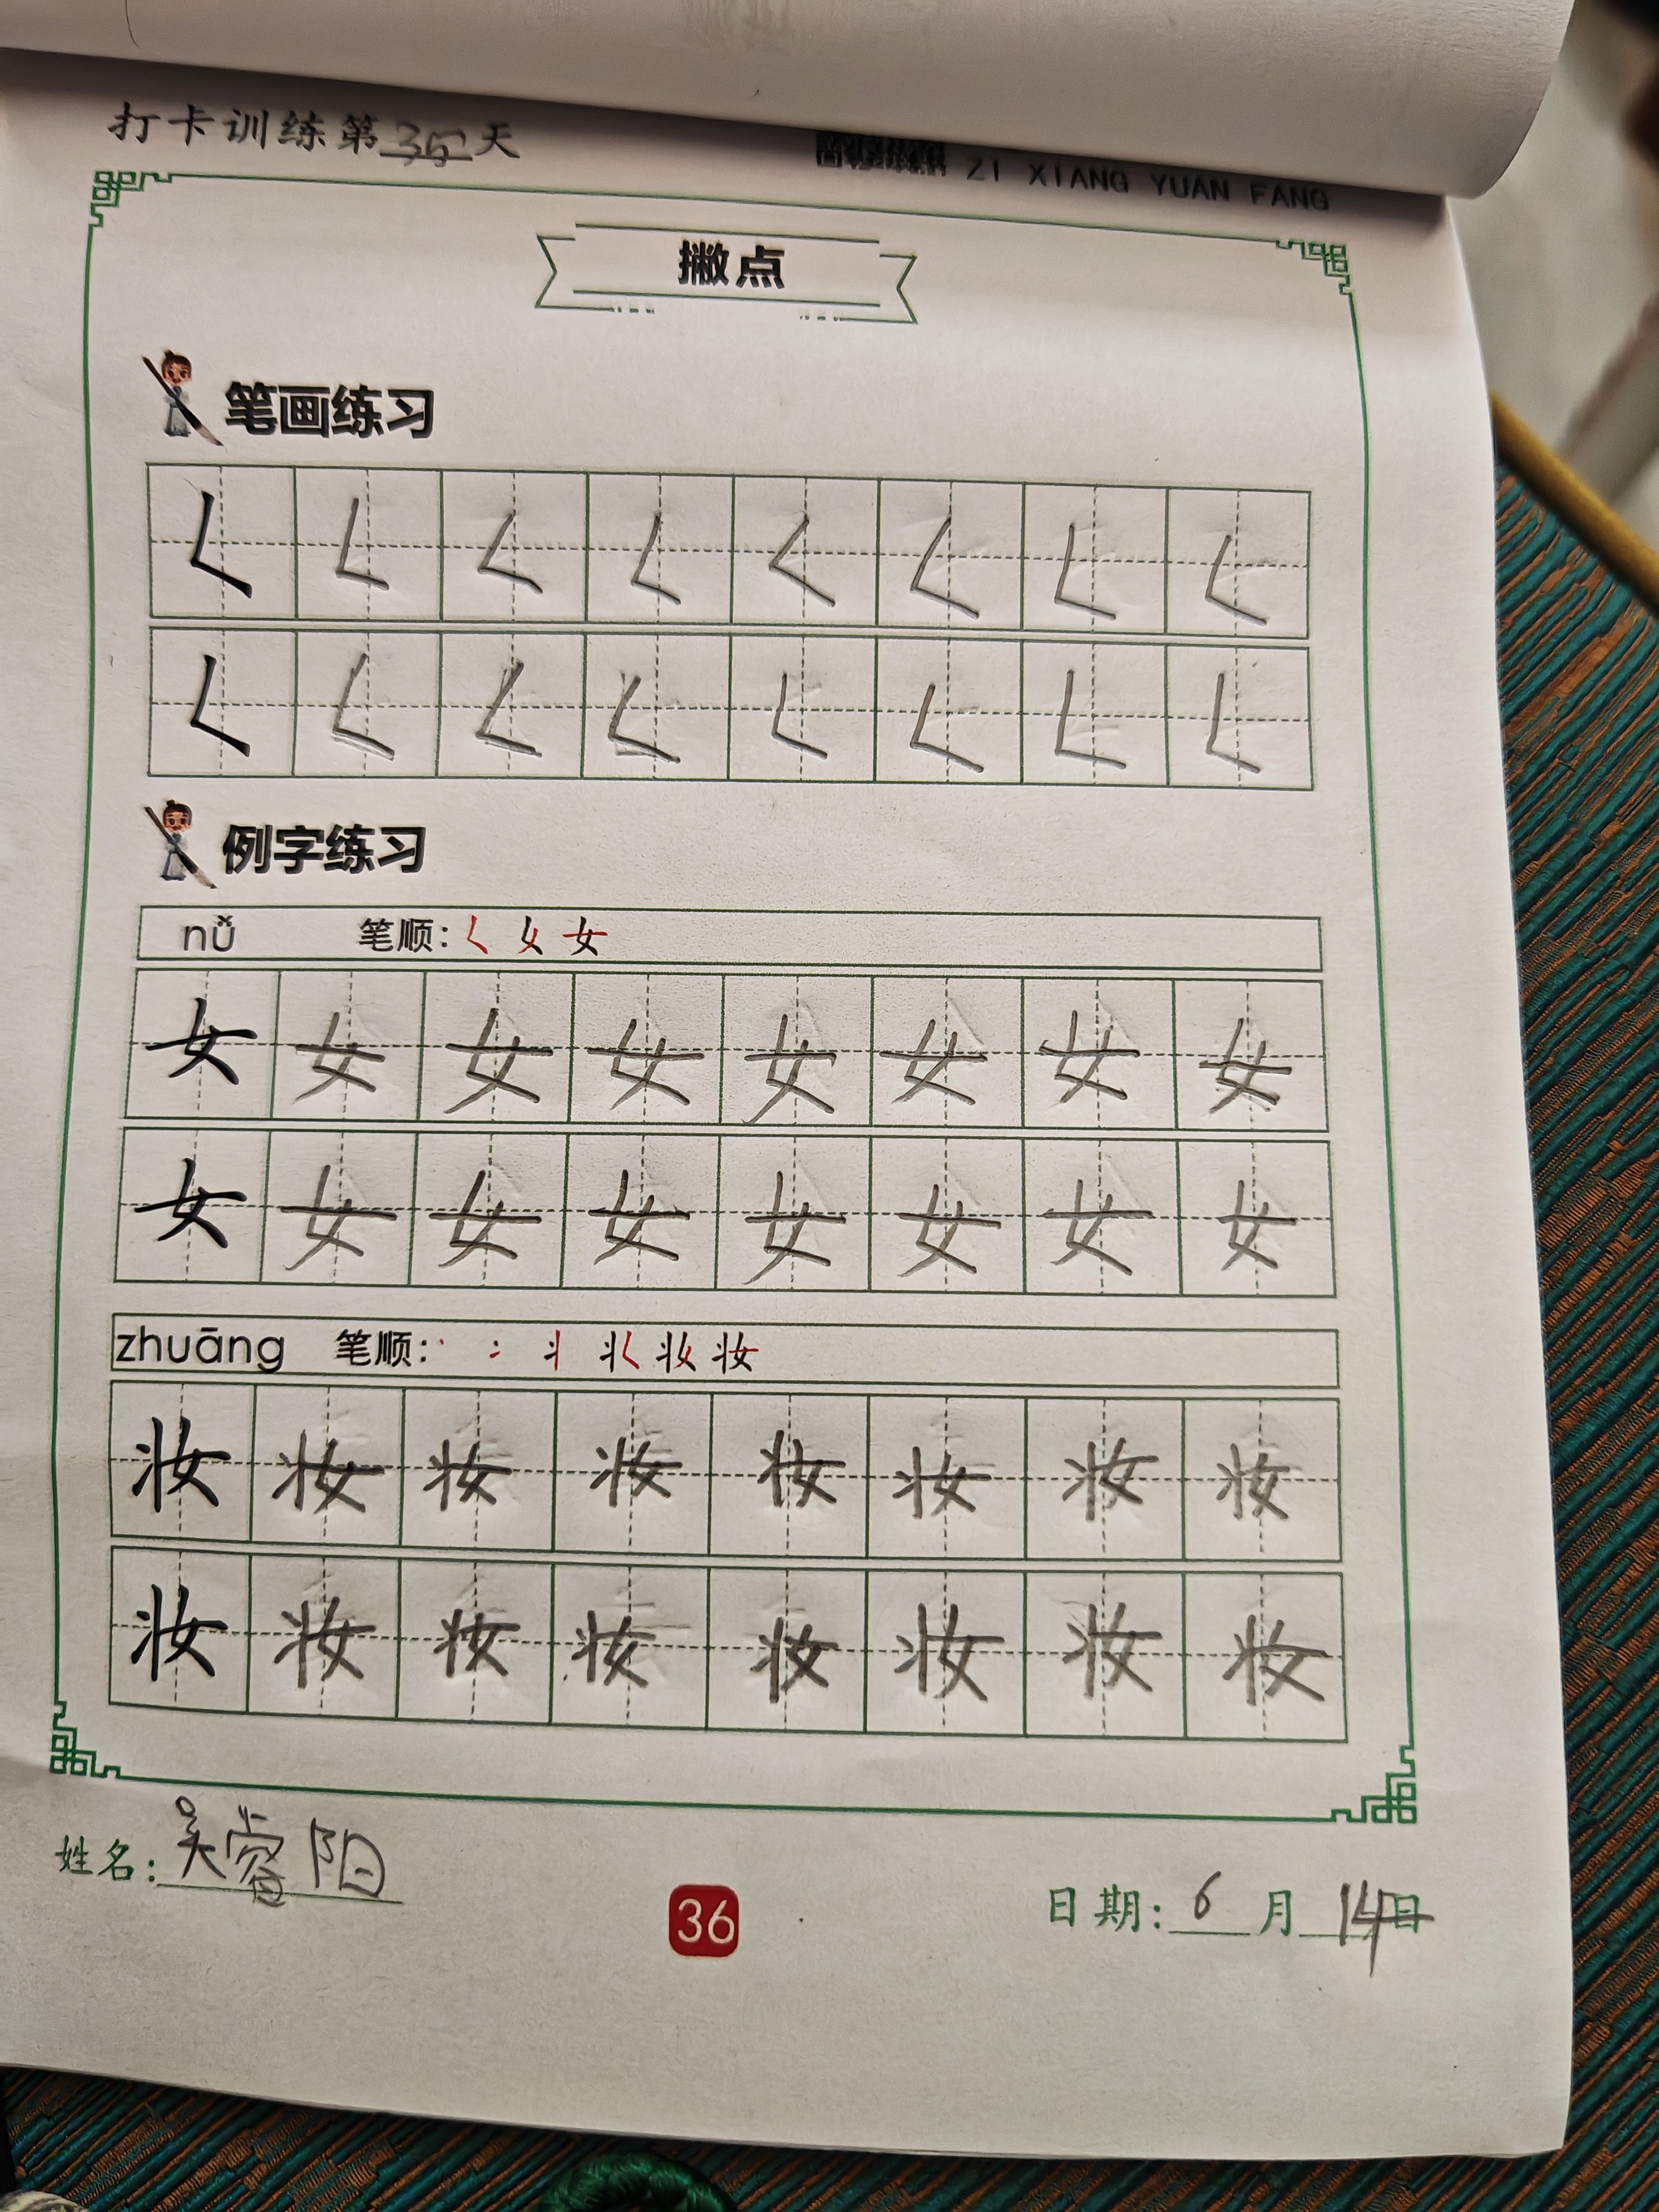 打卡训练第35天
ZI XIANG YUAN FANG
撇点
笔画练习
𡿨 𡿨 𡿨 𡿨 𡿨 𡿨 𡿨 𡿨
𡿨 𡿨 𡿨 𡿨 𡿨 𡿨 𡿨 𡿨
例字练习
nǚ 笔顺: 𡿨 女 女
女 女 女 女 女 女 女 女
女 女 女 女 女 女 女 女
zhuāng 笔顺: 妆
妆 妆 妆 妆 妆 妆 妆 妆
妆 妆 妆 妆 妆 妆 妆 妆
姓名: 吴睿阳
36
日期: 6月14日